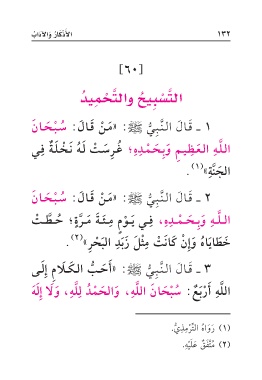 ١٣٢ الأَذْكَارُ وَالآدَابُ
[٦٠]
التَّسْبِيحُ والتَّحْمِيدُ
١ ـ قَالَ النَّبِيُّ ﷺ: «مَنْ قَالَ: سُبْحَانَ
اللَّهِ العَظِيمِ وَبِحَمْدِهِ؛ غُرِسَتْ لَهُ نَخْلَةٌ فِي
الجَنَّةِ»(١).
٢ ـ قَالَ النَّبِيُّ ﷺ: «مَنْ قَالَ: سُبْحَانَ
اللَّهِ وَبِحَمْدِهِ، فِي يَوْمٍ مِئَةَ مَرَّةٍ؛ حُطَّتْ
خَطَايَاهُ وَإِنْ كَانَتْ مِثْلَ زَبَدِ البَحْرِ»(٢).
٣ ـ قَالَ النَّبِيُّ ﷺ: «أَحَبُّ الكَلَامِ إِلَى
اللَّهِ أَرْبَعٌ: سُبْحَانَ اللَّهِ، وَالحَمْدُ لِلَّهِ، وَلَا إِلَهَ
(١) رَوَاهُ التِّرْمِذِيُّ.
(٢) مُتَّفَقٌ عَلَيْهِ.